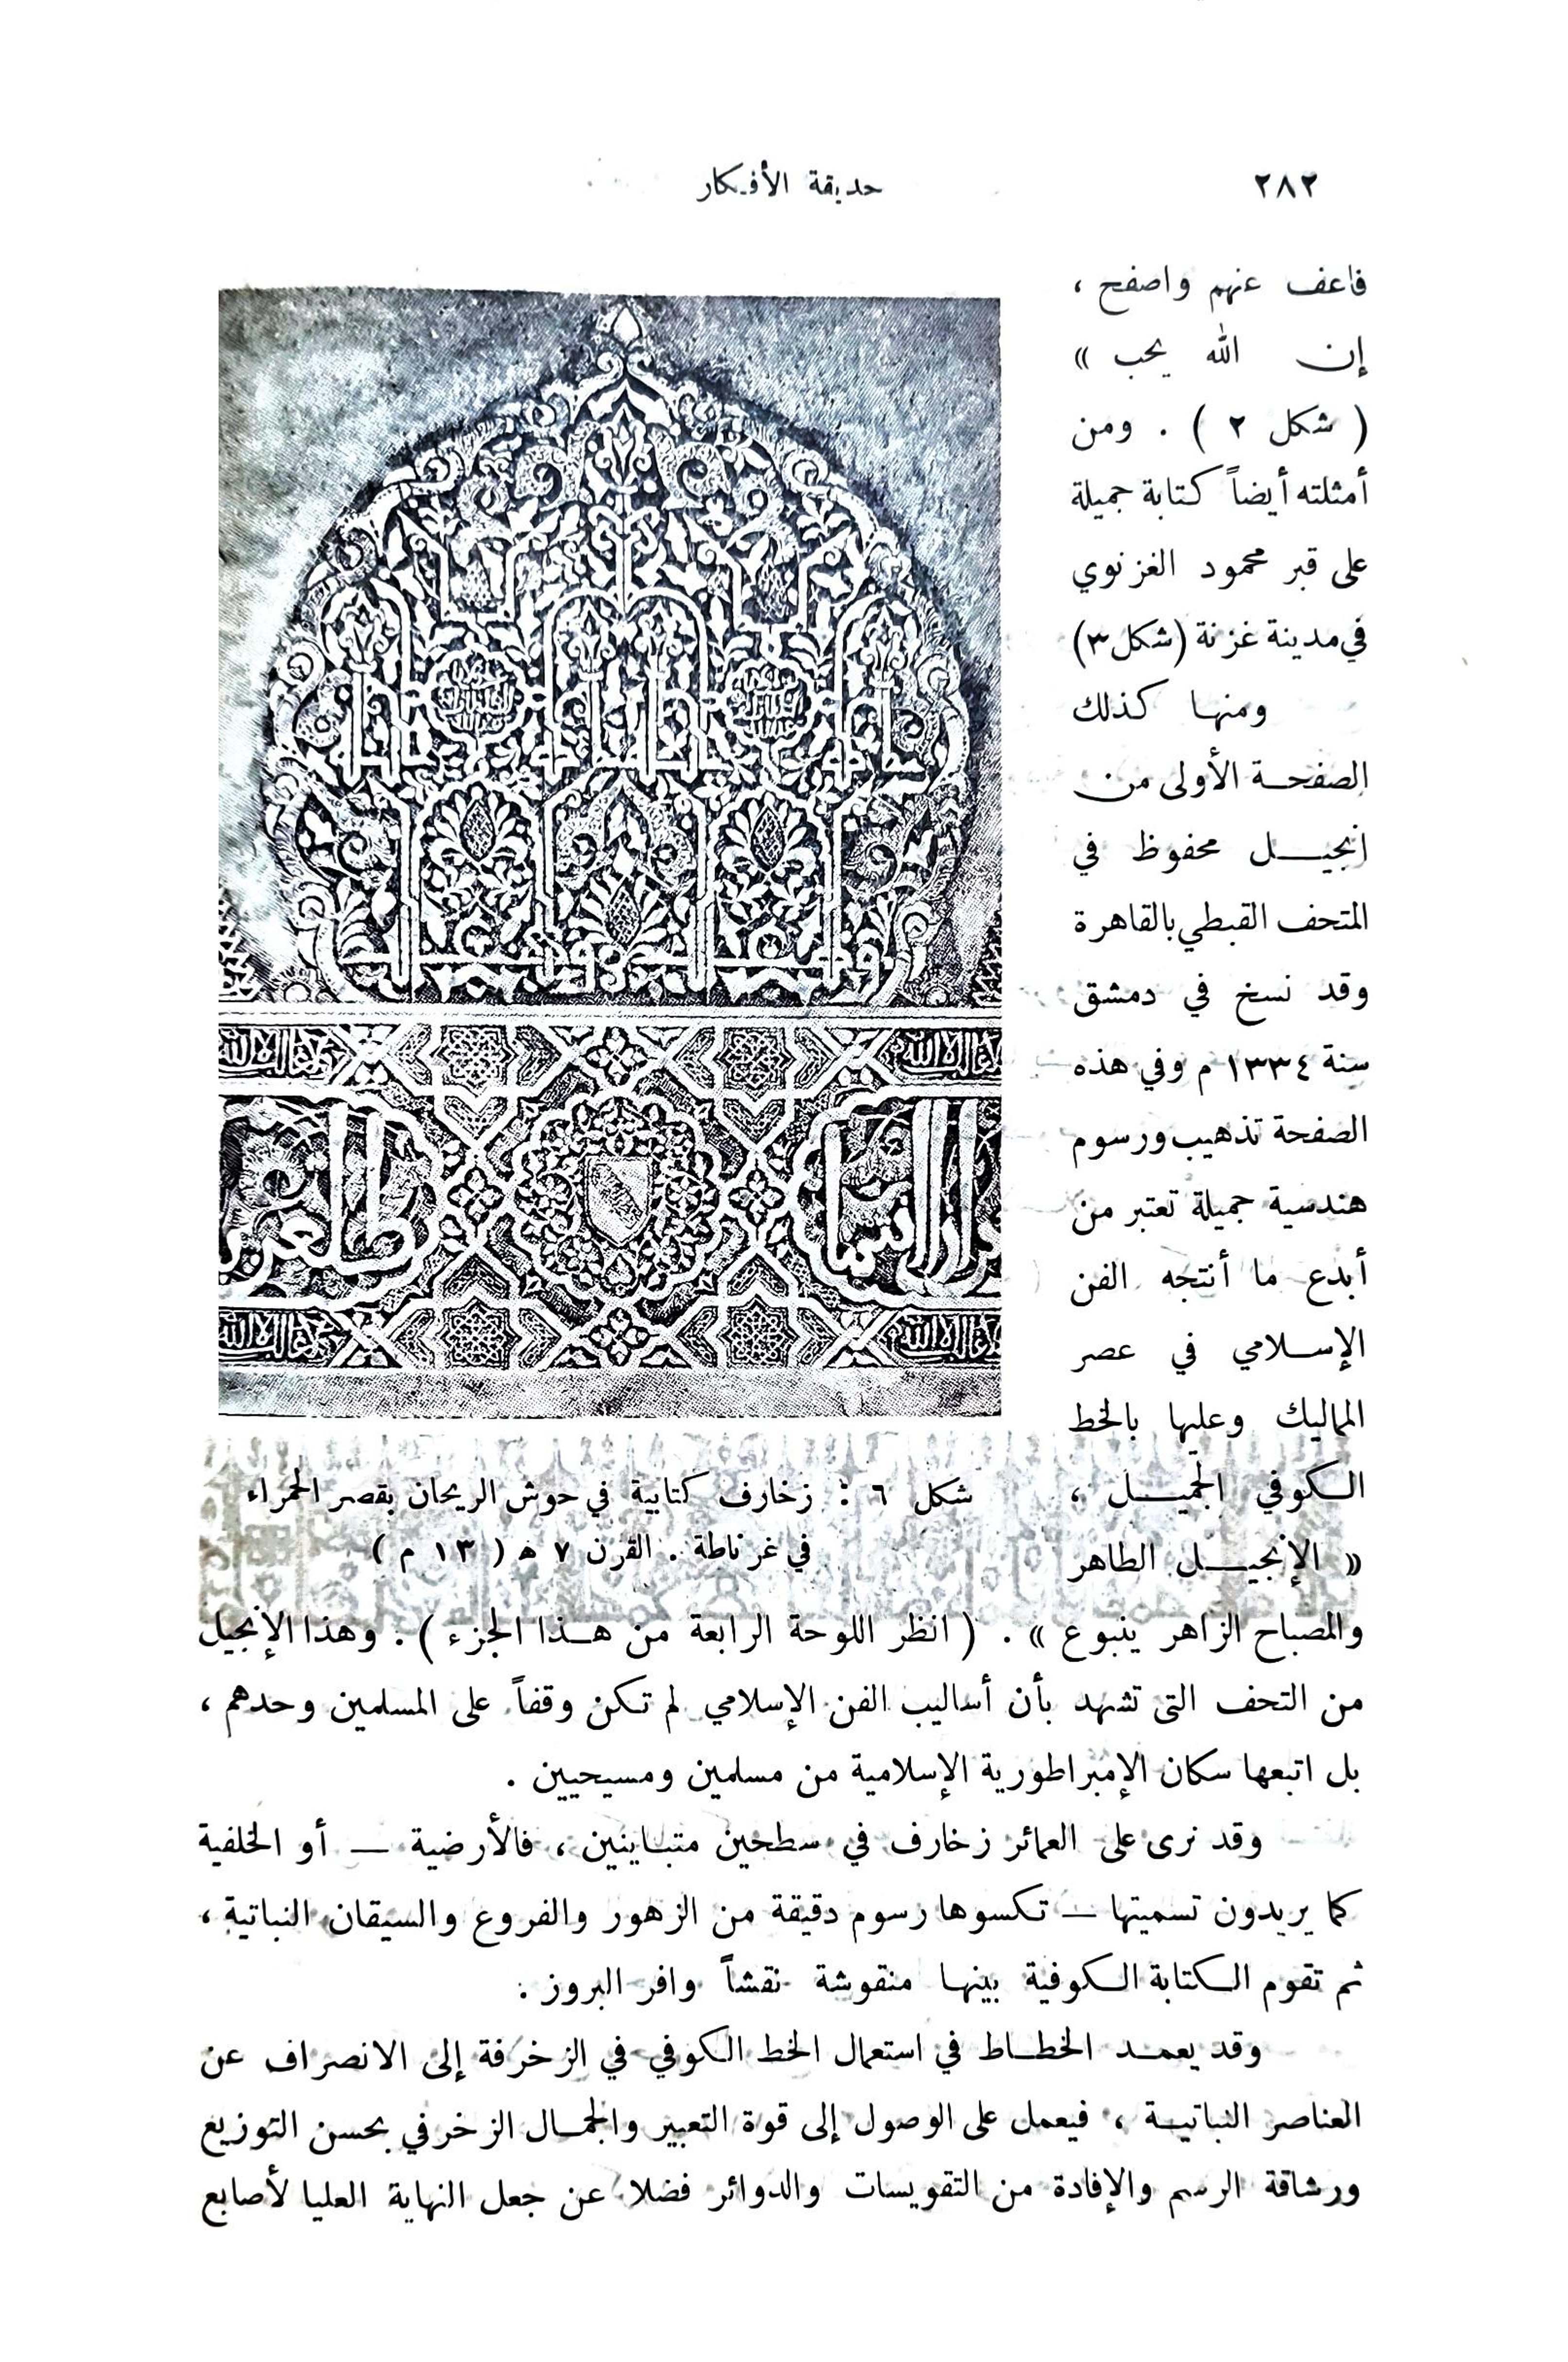 ٢٨٢
حديقة الأفكار
فاعف عنهم واصفح ،
إن الله يحب »
( شكل ٢ ) . ومن
أمثلته أيضاً كتابة جميلة
على قبر محمود الغزنوي
في مدينة غزنة (شكل ٣)
ومنها كذلك
الصفحة الأولى من
إنجيل محفوظ في
المتحف القبطي بالقاهرة
وقد نسخ في دمشق
سنة ١٣٣٤ م وفي هذه
الصفحة تذهيب ورسوم
هندسية جميلة تعتبر من
أبدع ما أنتجه الفن
الإسلامي في عصر
المماليك وعليها بالخط
الكوفي الجميل ،
« الإنجيل الطاهر
شكل ٦ : زخارف كتابية في حوش الريحان بقصر الحمراء
في غرناطة . القرن ٧ ه ( ١٣ م )
والمصباح الزاهر ينبوع » . ( انظر اللوحة الرابعة من هذا الجزء ) . وهذا الإنجيل
من التحف التى تشهد بأن أساليب الفن الإسلامي لم تكن وقفاً على المسلمين وحدهم ،
بل اتبعها سكان الإمبراطورية الإسلامية من مسلمين ومسيحيين .
وقد نرى على العمائر زخارف في سطحين متباينين ، فالأرضية — أو الخلفية
كما يريدون تسميتها — تكسوها رسوم دقيقة من الزهور والفروع والسيقان النباتية ،
ثم تقوم الكتابة الكوفية بينها منقوشة نقشاً وافر البروز .
وقد يعمد الخطاط في استعمال الخط الكوفي في الزخرفة إلى الانصراف عن
العناصر النباتية ، فيعمل على الوصول إلى قوة التعبير والجمال الزخرفي بحسن التوزيع
ورشاقة الرسم والإفادة من التقويسات والدوائر فضلا عن جعل النهاية العليا لأصابع